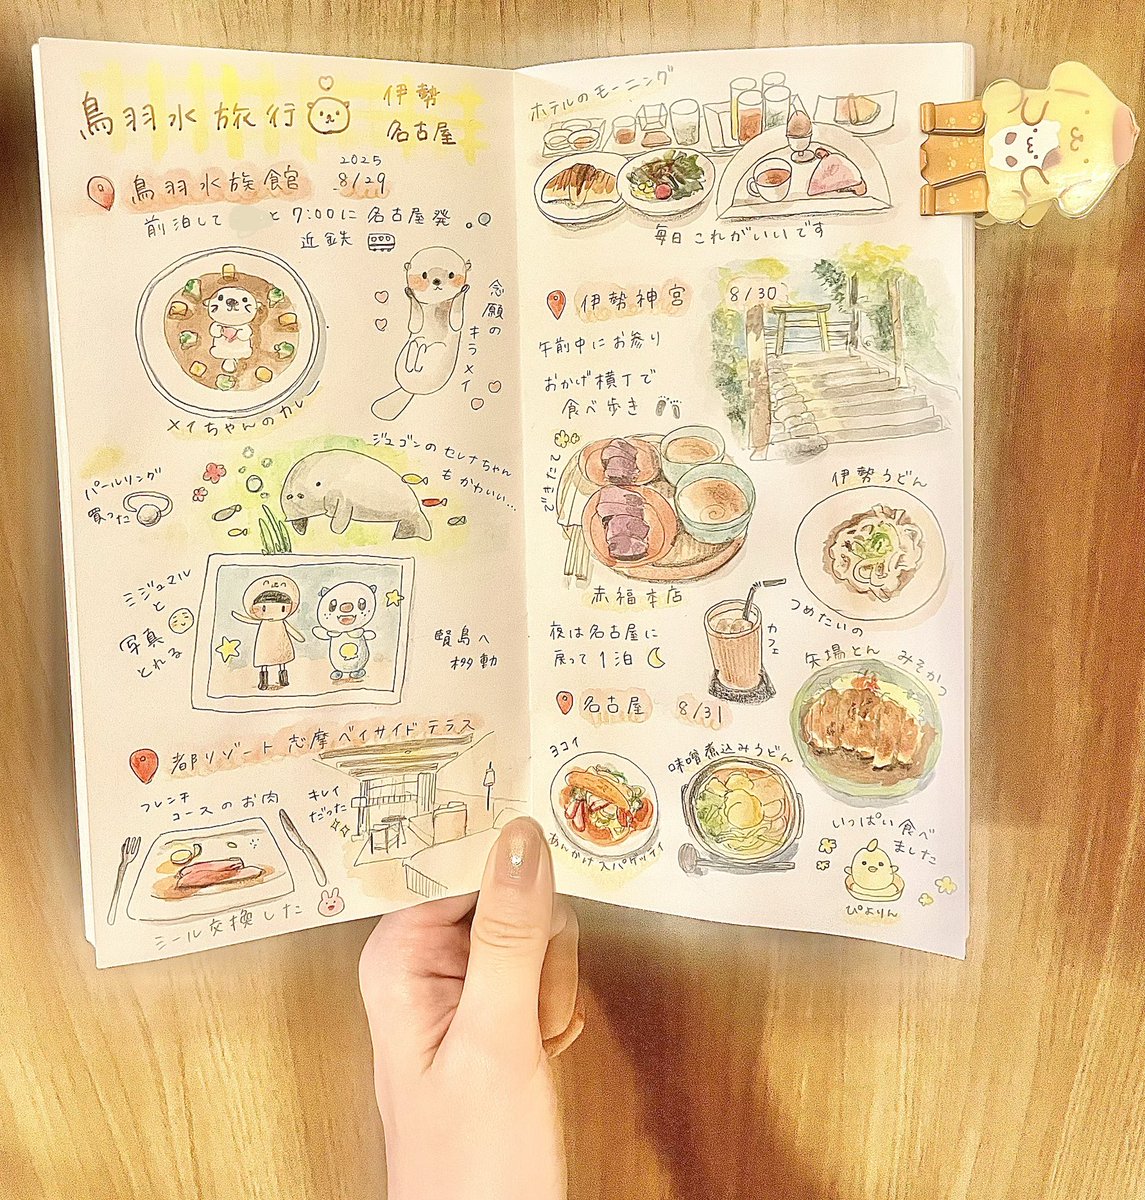 鳥羽水旅行
伊勢
名古屋
鳥羽水族館
2025
8/29
前泊して
と7:00に名古屋発。
近鉄
メイちゃんのカレー
念願のキラメイ
パールリング
買った
ジュゴンのセレナちゃん
もかわいい…
ミジュマル
と
写真
とれる
賢島へ
移動
都リゾート 志摩ベイサイドテラス
フレンチ
コースのお肉
キレイ
だった
シール交換した
ホテルのモーニング
毎日これがいいです
伊勢神宮
8/30
午前中にお参り
おかげ横丁で
食べ歩き
できたて
赤福本店
伊勢うどん
つめたいの
カフェ
夜は名古屋に
戻って1泊
矢場とん みそかつ
名古屋 8/31
ヨコイ
あんかけスパゲッティ
味噌煮込みうどん
いっぱい食べ
ました
ぴよりん